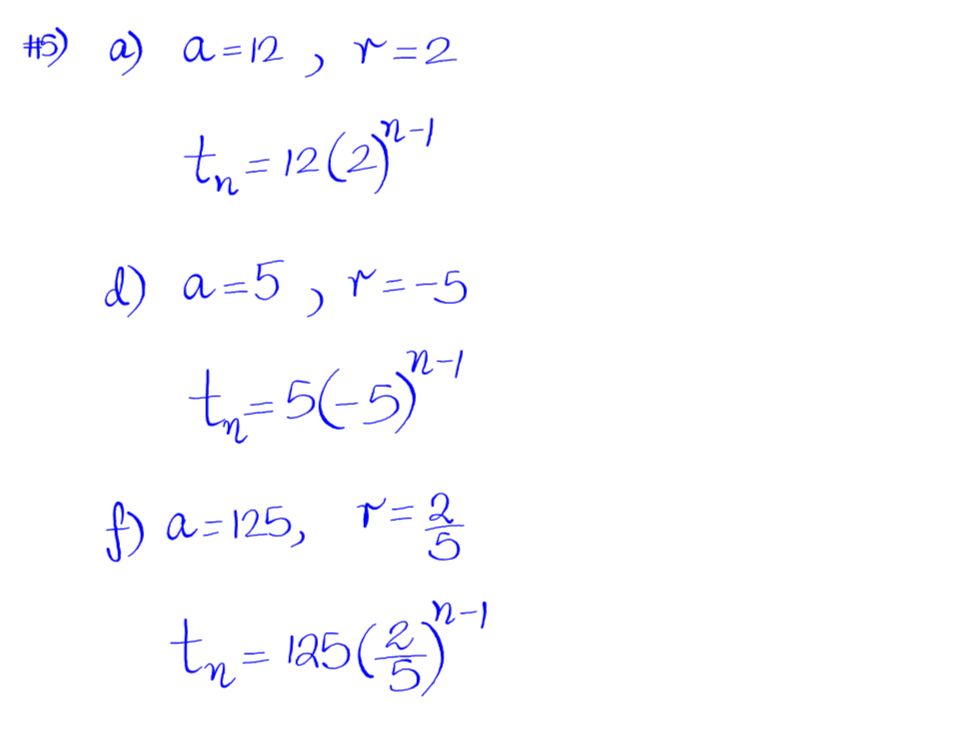 #5) a) a = 12 , r = 2
tₙ = 12(2)ⁿ⁻¹
d) a = 5 , r = -5
tₙ = 5(-5)ⁿ⁻¹
f) a = 125, r = 2/5
tₙ = 125(2/5)ⁿ⁻¹